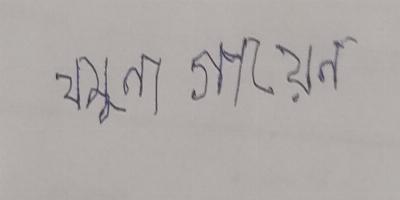 যমুনা গায়েন